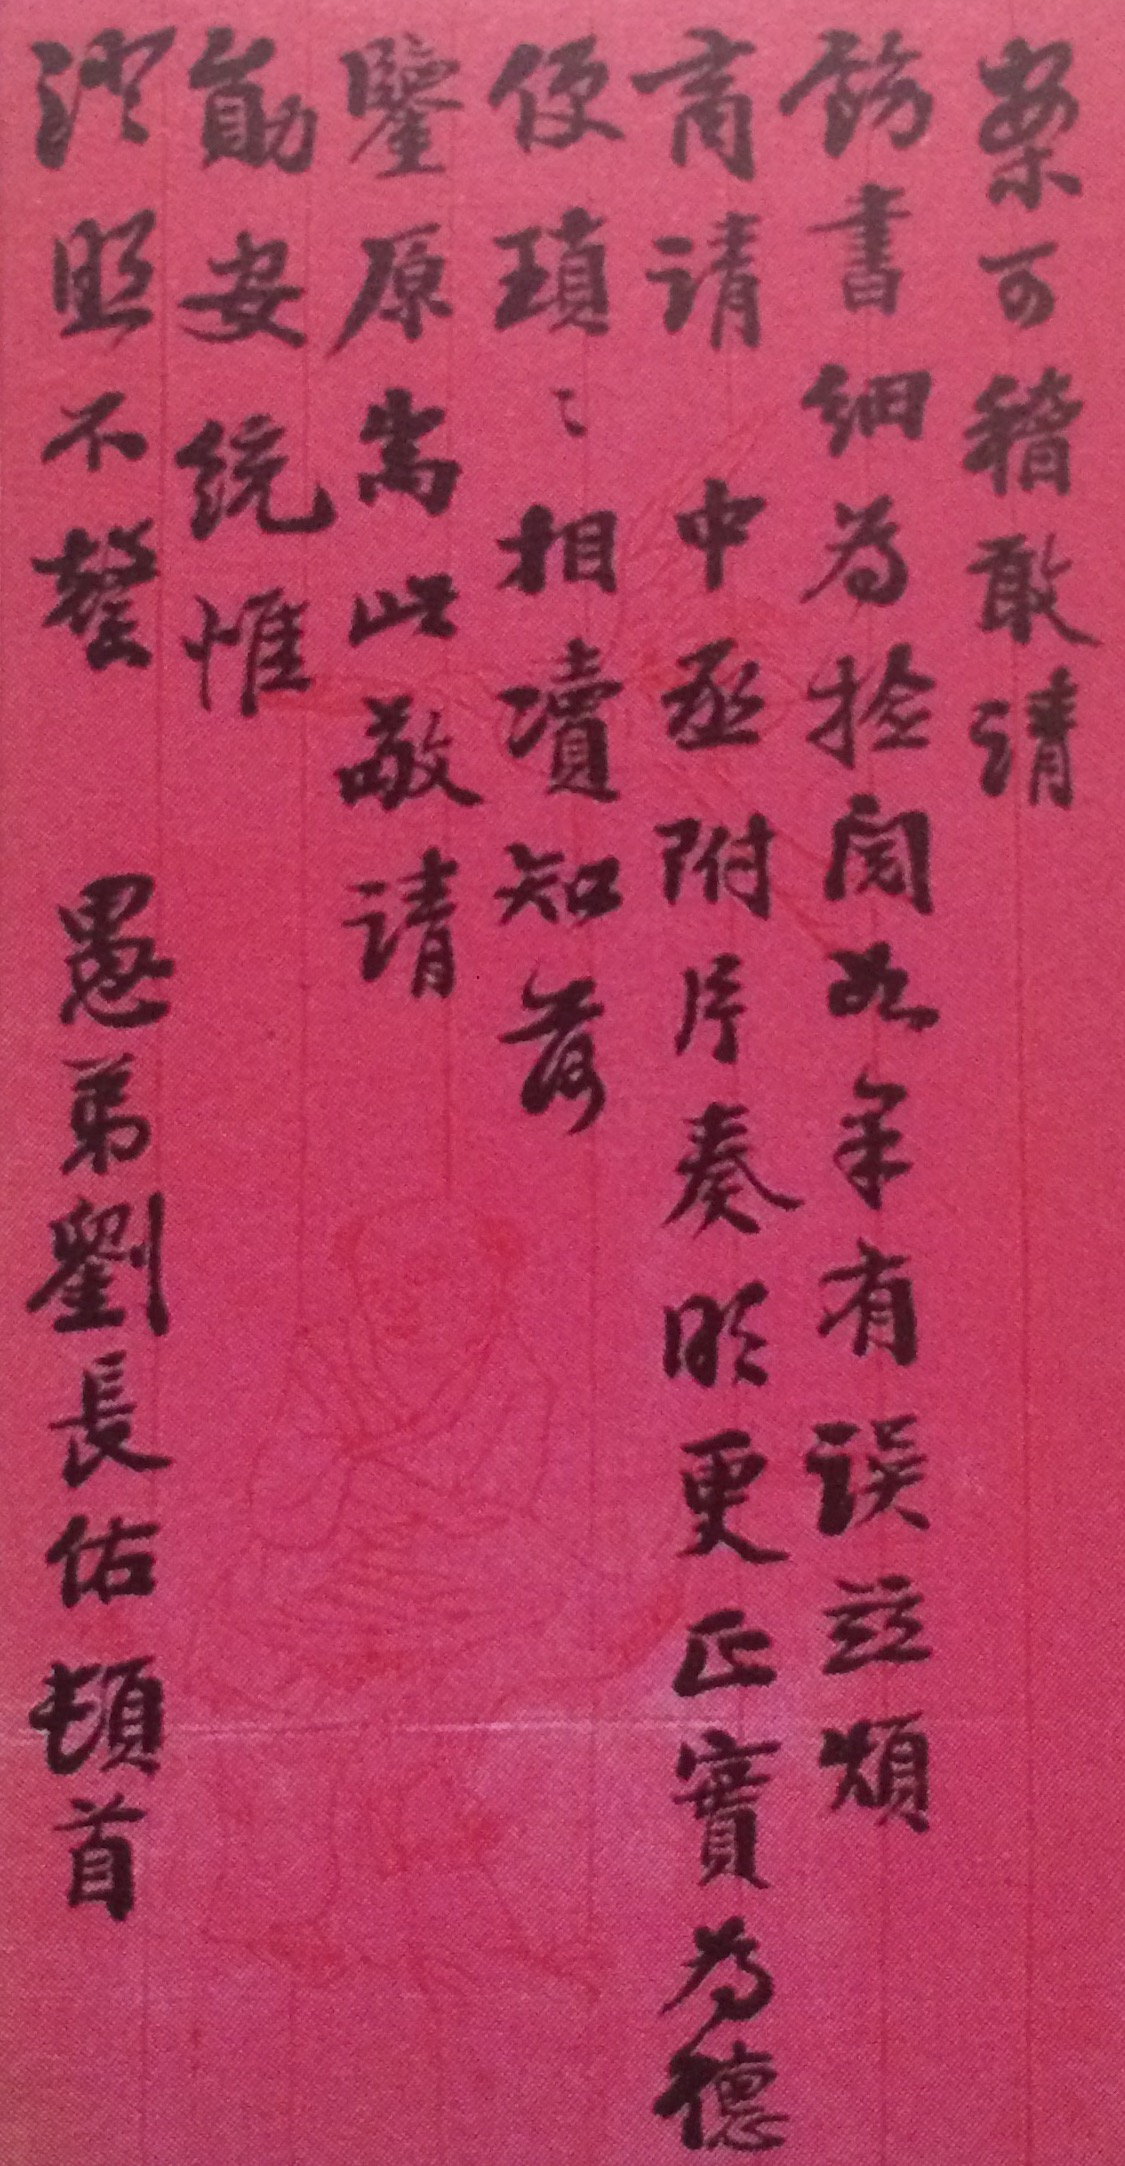 案可稽敢請
飭書細為捡閱如果有誤茲煩
商請 中丞附片奏明更正實為德
便瑣〻相瀆知荷
鑒原耑此敬請
勛安統惟
澄照不罄 愚弟劉長佑頓首